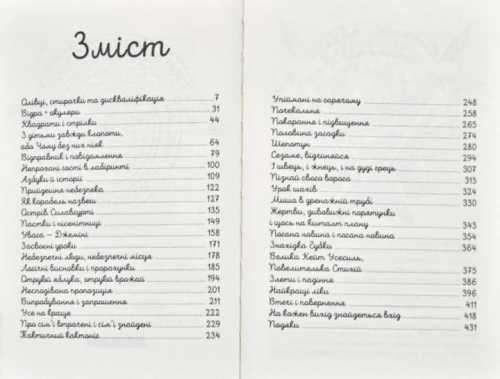 Зміст
Олівці, стирачки та дискваліфікація 7
Відра + окуляри 31
Квадрати і стрілки 44
З дітьми завжди клопоти,
або Чому без них ніяк 64
Вправляння і повідомлення 79
Непрохані гості в лабіринті 100
Азбуки й історії 109
Прийдешня небезпека 122
Як корабель назвеш 127
Острів Салаварті
Пастки і нісенітниці 149
Увага — Джеміні 158
Засвоєні уроки 171
Небезпечні люди, небезпечні місця 178
Логічні висновки і прорахунки 185
Отруйна яблука, отруйна врожай 194
Несподівана пропозиція 201
Випробування і запрошення 211
Усе на краще 222
Про сім'ї втрачені і сім'ї знайдені 229
Тактичний кактоніє 234
Упіймані на гарячому 248
Почекальня 258
Покарання і підвищення 265
Половина загадки 274
Шепотун 280
Сезаме, відчиняйся 294
І швець, і жнець, і на дуді грець 307
Пізнай свого ворога 313
Урок шахів 324
Миша в дренажній трубі 330
Жертви, дивовижні порятунки
і щось на кшталт плану 343
Погана новина і погана новина 354
Знахідка Губки 364
Велика Кейт Усесиль,
Повелителька Стихій 375
Злети і падіння 386
Найкращі ліки 396
Втечі і повернення 411
На кожен вихід знайдеться вхід 418
Подяки 431